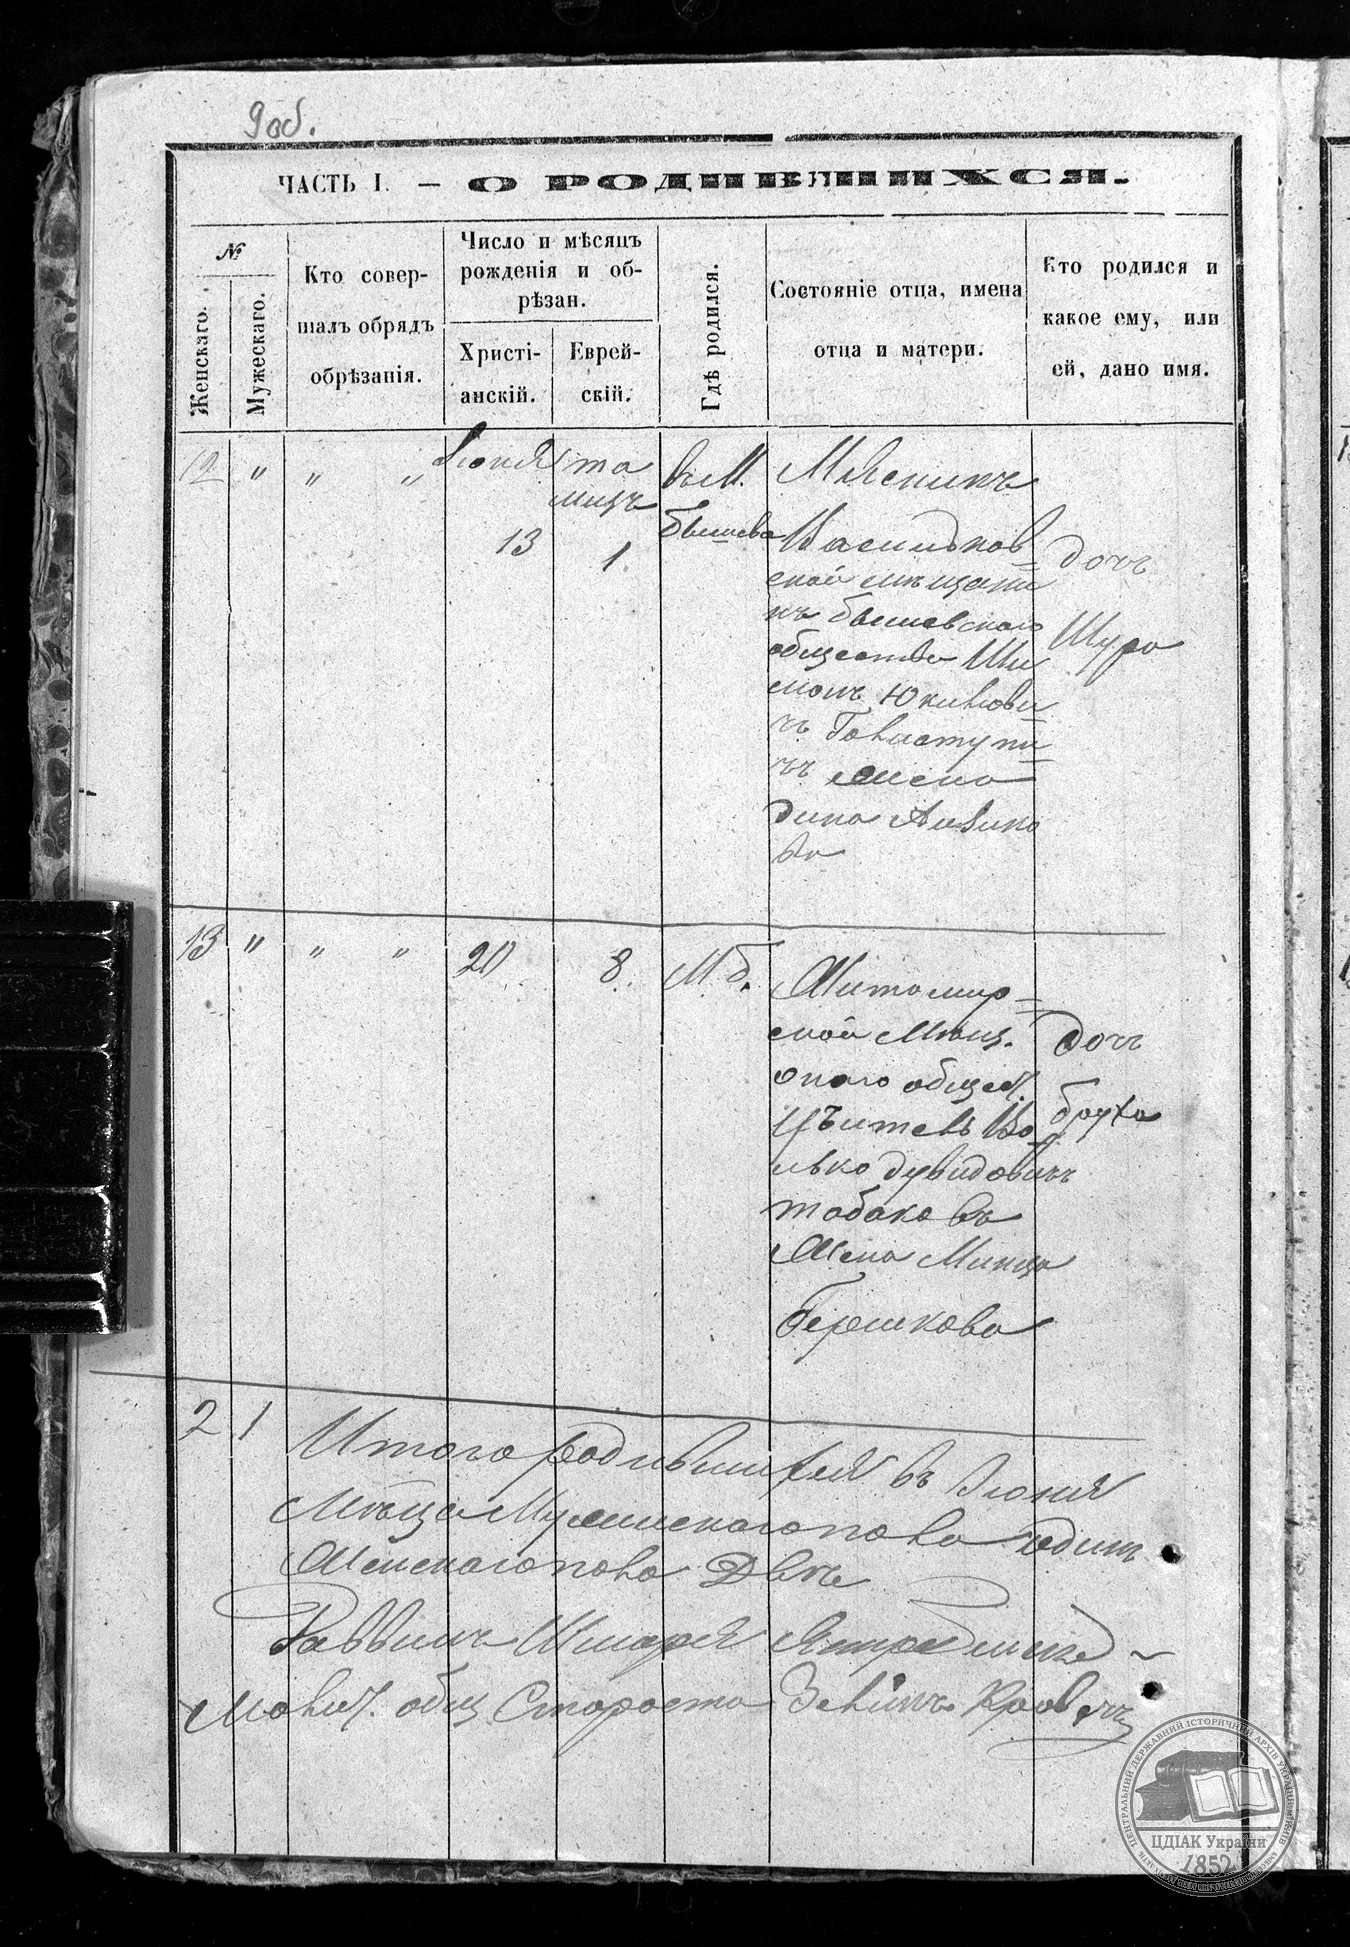 9об.
ЧАСТЬ I. — О РОДИВШИХСЯ.
№
Женскаго.
Мужескаго.
Кто совер-
шалъ обрядъ
обрѣзанія.
Число и мѣсяцъ
рожденія и об-
рѣзан.
Христі-
анскій.
Еврей-
скій.
Гдѣ родился.
Состояніе отца, имена
отца и матери.
Кто родился и
какое ему, или
ей, дано имя.
12 " " " Июня та
мизъ
13 1
въ М.
Бышева
Мясникъ
Васильков
ской мѣщани
нъ Бышевскаго
общества Ши
монъ
чъ
жена
дина
ва
дочь
Шура
13 " " " 20 8 М. б.
Житомир-
ской Мѣщ.
онаго общест.
Во
лько дувидовичъ
табаковъ
Жена
Гершкова
дочь
бруха
2 1 Итого родившихся въ Июня
Мѣсяца Мужескаго пола один
Женскаго пола Двѣ
Раввинъ Шмаря
общ Староста
ЦЕНТРАЛЬНИЙ ДЕРЖАВНИЙ ІСТОРИЧНИЙ АРХІВ УКРАЇНИ, М. КИЇВ
ЦДІАК України
1852